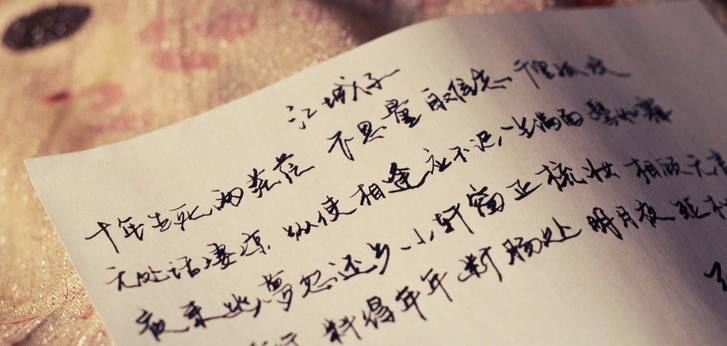 江城子
十年生死两茫茫 不思量 自难忘 千里孤坟
无处话凄凉 纵使相逢应不识 尘满面 鬓如霜
夜来幽梦忽还乡 小轩窗 正梳妆 相顾无言
料得年年断肠处 明月夜 短松